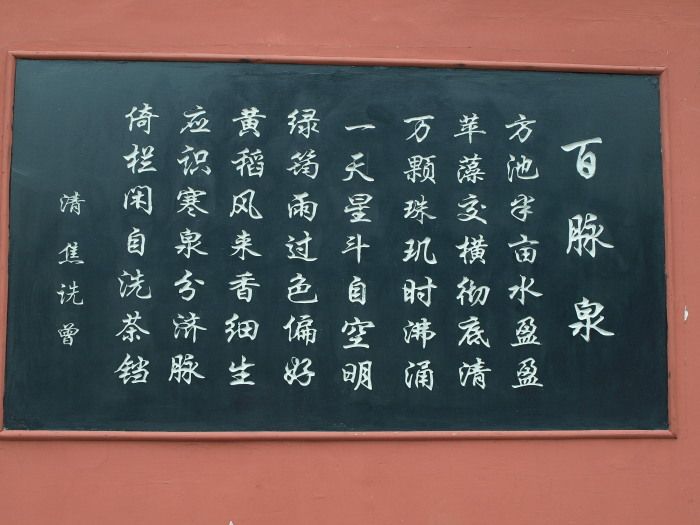 百脉泉
方池半亩水盈盈
苹藻交横彻底清
万颗珠玑时沸涌
一天星斗自空明
绿筠雨过色偏好
黄稻风来香细生
应识寒泉分济脉
倚栏闲自洗茶铛
清 焦诜曾